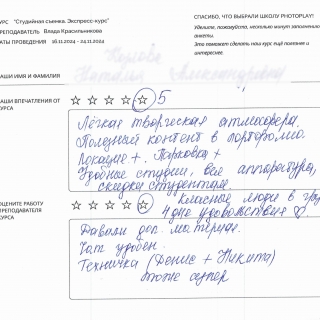 УРС "Студийная съемка. Экспресс-курс"
РЕПОДАВАТЕЛЬ Влада Красильникова
АТЫ ПРОВЕДЕНИЯ 16.11.2024 - 24.11.2024
СПАСИБО, ЧТО ВЫБРАЛИ ШКОЛУ PHOTOPLAY!
Уделите, пожалуйста, несколько минут заполнению анкеты.
Это поможет сделать наш курс ещё полезнее и интереснее.
АШИ ИМЯ И ФАМИЛИЯ
Наталья Александровна
АШИ ВПЕЧАТЛЕНИЯ ОТ
УРСА
5
Лёгкая творческая атмосфера.
Полезный контент в портфолио.
Локация +. Парковка +
Удобные студии, вся аппаратура,
скидки студентам.
классные люди в гр
4 дня удовольствия
ЦЕНИТЕ РАБОТУ
РЕПОДАВАТЕЛЯ
УРСА
Давали доп. материал.
Чат удобен.
Технички (Денис + Никита)
тоже супер